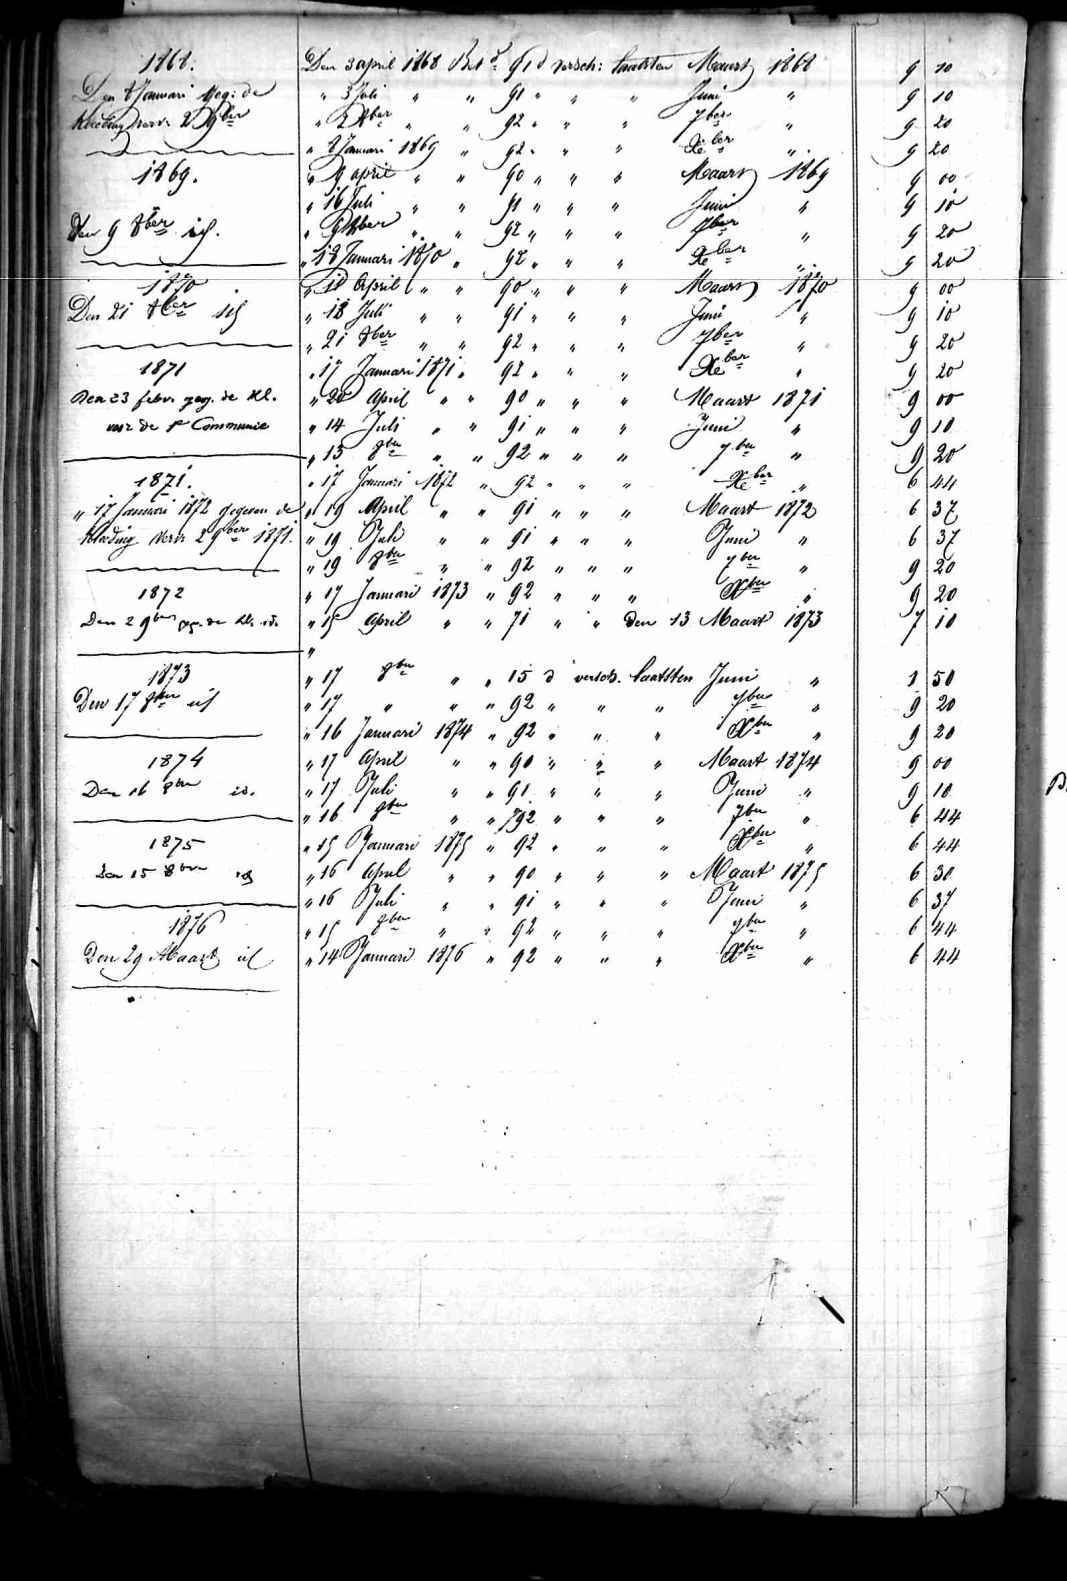 1868.
Den 8 Januari Geg: de
Kleeding verv: 2 9ber
1869.
Den 9 8ber id.
1870
Den 21 8ber id
1871
Den 23 febr. geg. de Kl.
voor de 1e Communie
1871.
" 17 Januari 1872 gegeven de
Kleeding verv 2 9ber 1871.
1872
Den 2 9ber geg. de Kl. id.
1873
Den 17 8ber id
1874
Den 16 8ber id.
1875
Den 15 8ber id
1876
Den 29 Maart id
Den 3 april 1868 Bet d 91 d versch: laatsten Maart 1868 9 10
" 3 Juli " " 91 " " " Juni " 9 10
" 2 8ber " " 92 " " " 7ber " 9 20
" 8 Januari 1869 " 92 " " " Xber " 9 20
" 9 april " " 90 " " " Maart 1869 9 00
" 16 Juli " " 91 " " " Juni " 9 10
" 9 8ber " " 92 " " " 7ber " 9 20
" 18 Januari 1870 " 92 " " " Xber " 9 20
" 18 April " " 90 " " " Maart 1870 9 00
" 18 Juli " " 91 " " " Juni " 9 10
" 21 8ber " " 92 " " " 7ber " 9 20
" 17 Januari 1871 " 92 " " " Xber " 9 20
" 20 April " " 90 " " " Maart 1871 9 00
" 14 Juli " " 91 " " " Juni " 9 10
" 13 8ber " " 92 " " " 7ber " 9 20
" 17 Januari 1872 " 92 " " " Xber " 6 44
" 19 April " " 91 " " " Maart 1872 6 37
" 19 Juli " " 91 " " " Juni " 6 37
" 19 8ber " " 92 " " " 7ber " 9 20
" 17 Januari 1873 " 92 " " " Xber " 9 20
" 15 April " " 71 " " den 13 Maart 1873 7 10
"
" 17 8ber " " 15 d versch. laatsten Juni " 1 50
" 17 " " " 92 " " " 7ber " 9 20
" 16 Januari 1874 " 92 " " " Xber " 9 20
" 17 April " " 90 " " " Maart 1874 9 00
" 17 Juli " " 91 " " " Juni " 9 10
" 16 8ber " " 92 " " " 7ber " 6 44
" 15 Januari 1875 " 92 " " " Xber " 6 44
" 16 April " " 90 " " " Maart 1875 6 30
" 16 Juli " " 91 " " " Juni " 6 37
" 15 8ber " " 92 " " " 7ber " 6 44
" 14 Januari 1876 " 92 " " " Xber " 6 44